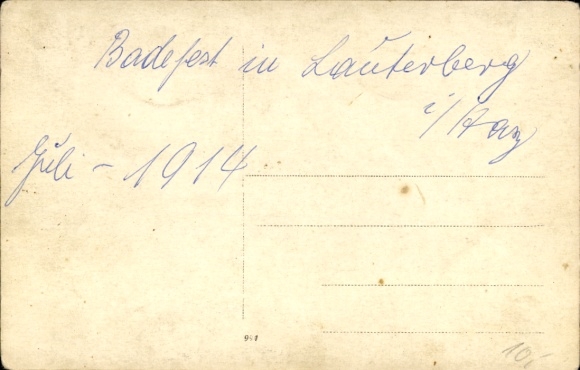 Badefest in Lauterberg
i/Harz
Juli - 1914
991
10,-